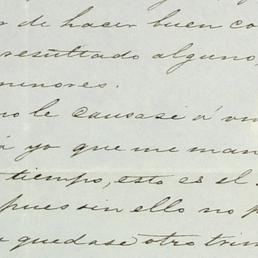 de hacer buen co
resultado alguno,
menores.
no le causase á
yo que me man
tiempo, esto es el
pues sin ello no p
quedase otro trim